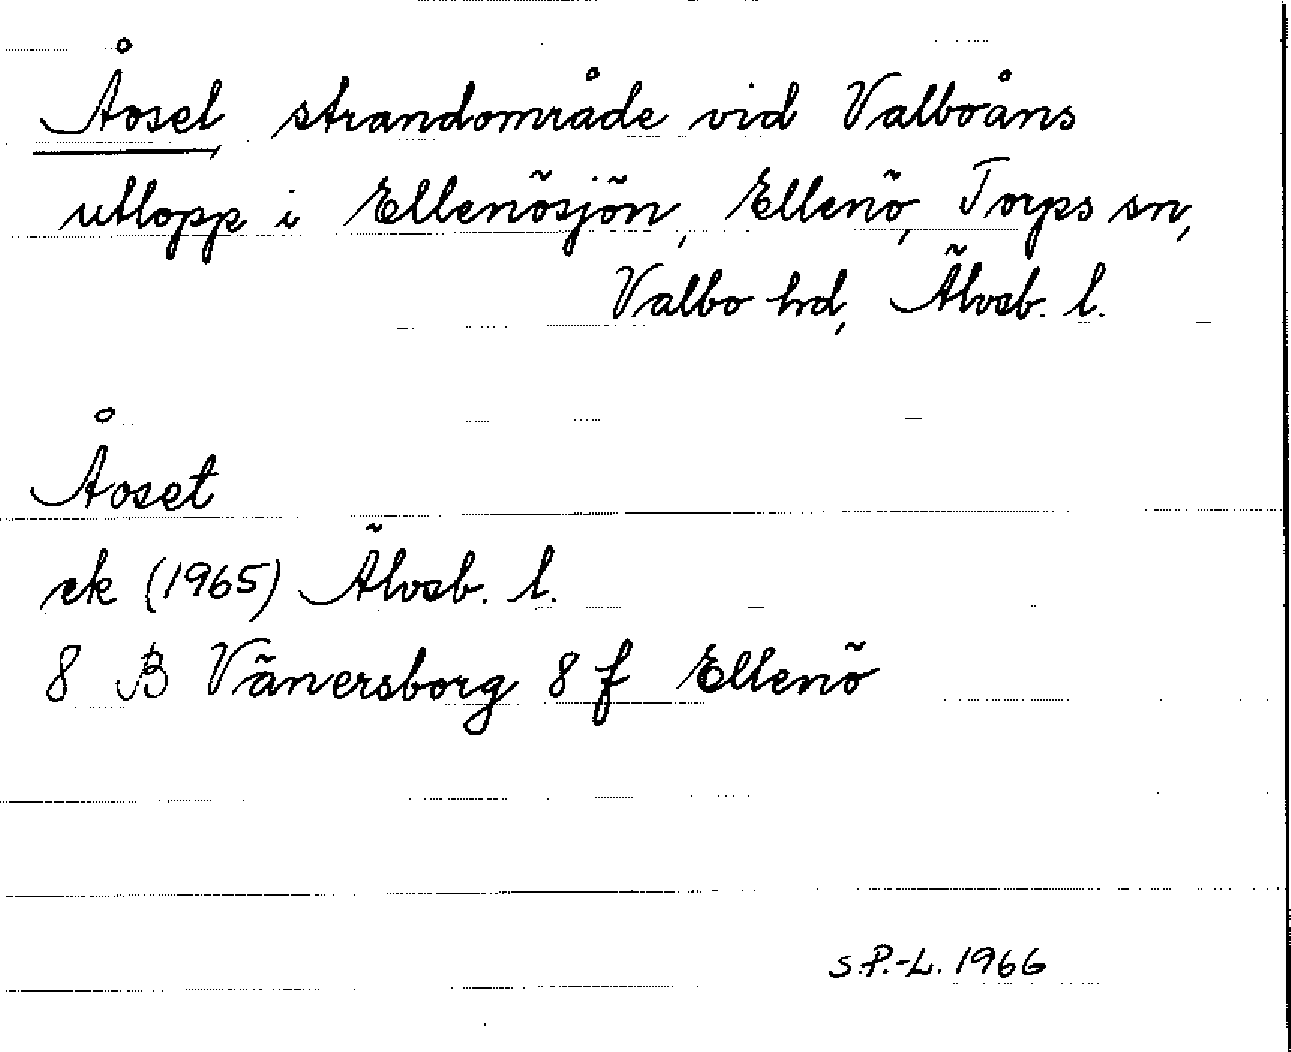 Åoset, strandområde vid Valboåns
utlopp i Ellenösjön, Ellenö, Torps sn,
Valbo hd, Älvsb. l.
Åoset
ek (1965) Älvsb. l.
8 B Vänersborg 8 f Ellenö
S.P.-L. 1966